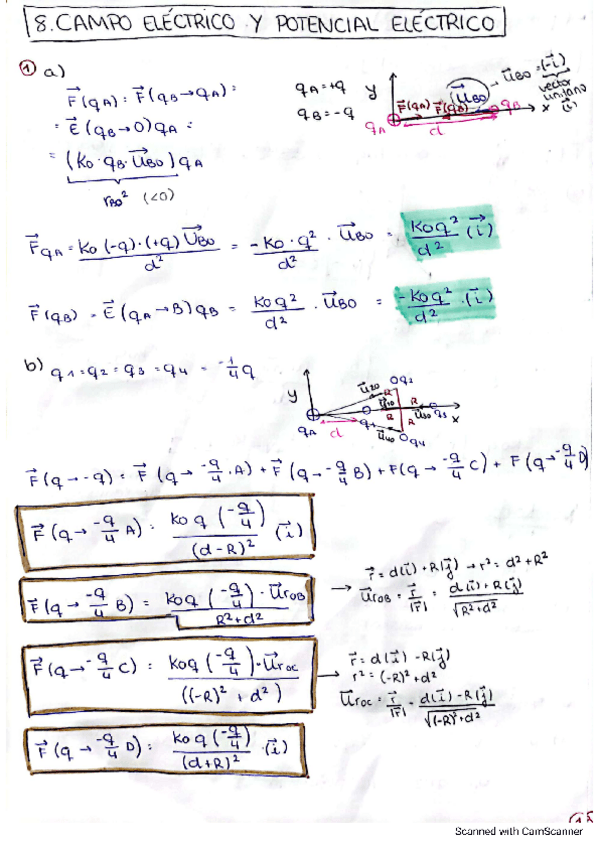 8. CAMPO ELÉCTRICO Y POTENCIAL ELÉCTRICO
① a)
F⃗(qA) = F⃗(qB→qA) =
= E⃗(qB→0)qA =
= (K0·qB·u⃗B0)qA
rB0² (<0)
qA=+q
qB=-q
y
F⃗(qA) F⃗(qB)
qA
d
qB
x
u⃗B0
u⃗B0=(-i⃗)
vector
unitario
(i⃗)
F⃗qA = K0(-q)·(+q)u⃗B0 / d² = -K0·q² / d² · u⃗B0 = K0q² / d² (i⃗)
F⃗(qB) = E⃗(qA→B)qB = K0q² / d² · u⃗B0 = -K0q² / d² ·(i⃗)
b) q1=q2=q3=q4 = -1/4 q
y
qA
d
u⃗20
q2
u⃗10
q1
R
R
R
u⃗30
q3
x
u⃗40
q4
F⃗(q→-q) = F⃗(q→-q/4 A) + F⃗(q→-q/4 B) + F(q→-q/4 C) + F(q→-q/4 D)
F⃗(q→-q/4 A) = K0q(-q/4) / (d-R)² (i⃗)
F⃗(q→-q/4 B) = K0q(-q/4)·u⃗r0B / R²+d²
→ r⃗ = d(i⃗)+R(j⃗) → r² = d²+R²
u⃗r0B = r⃗/|r⃗| = d(i⃗)+R(j⃗) / √R²+d²
F⃗(q→-q/4 C) = K0q(-q/4)·u⃗r0C / ((-R)²+d²)
→ r⃗ = d(i⃗) -R(j⃗)
r² = (-R)²+d²
u⃗r0C = r⃗/|r⃗| = d(i⃗)-R(j⃗) / √(-R)²+d²
F⃗(q→-q/4 D) = K0q(-q/4) / (d+R)² ·(i⃗)
Scanned with CamScanner